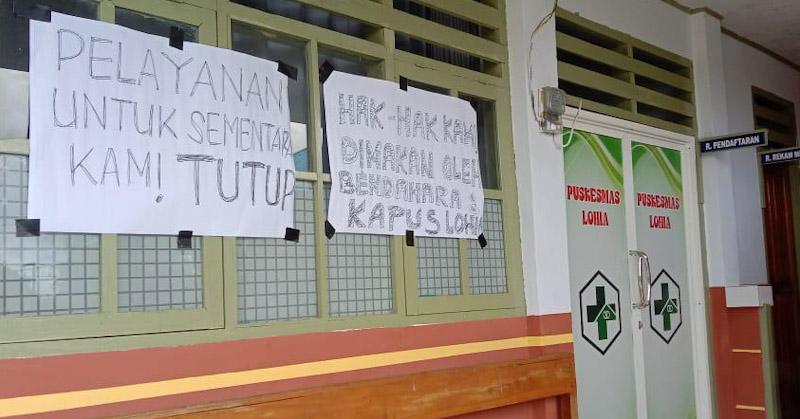 PELAYANAN
UNTUK SEMENTARA
KAMI TUTUP
HAK-HAK KAMI
DIMAKAN OLEH
BENDAHARA &
KAPUS LOHIA
PUSKESMAS
LOHIA
PUSKESMAS
LOHIA
R. PENDAFTARAN
R. REKAM